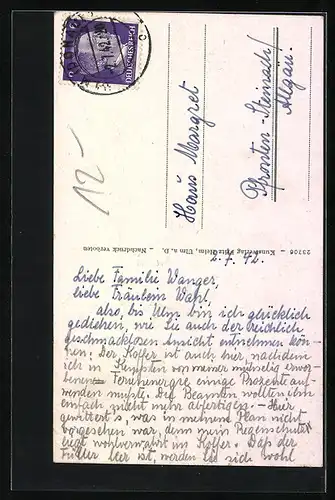 Haus Margret
Pfronten-Steinach/
Allgäu.
12-
23706 – Kunstverlag Fritz Helm, Ulm a. D. – Nachdruck verboten
2.7.42.
Liebe Familie Wanger,
liebe Fräulein Wahl,
also, bis Ulm bin ich glücklich
gediehen, wie Sie auch der reichlich
geschmacklosen Ansicht entnehmen kön-
nen. Der Koffer ist auch hier, nachdem
ich in Kempten von meiner mühselig erwor-
benen Ferienenergie einige Prozent auf-
wenden mußte. Die Beamten wollten ihn
einfach nicht mehr abfertigen. – Hier
gewittert's, was in meinem Plan nicht
vorgesehen war, denn mein Regenschutz
liegt wohlverwahrt im Koffer. Daß der
Füller leer ist, werden Sie sich wohl